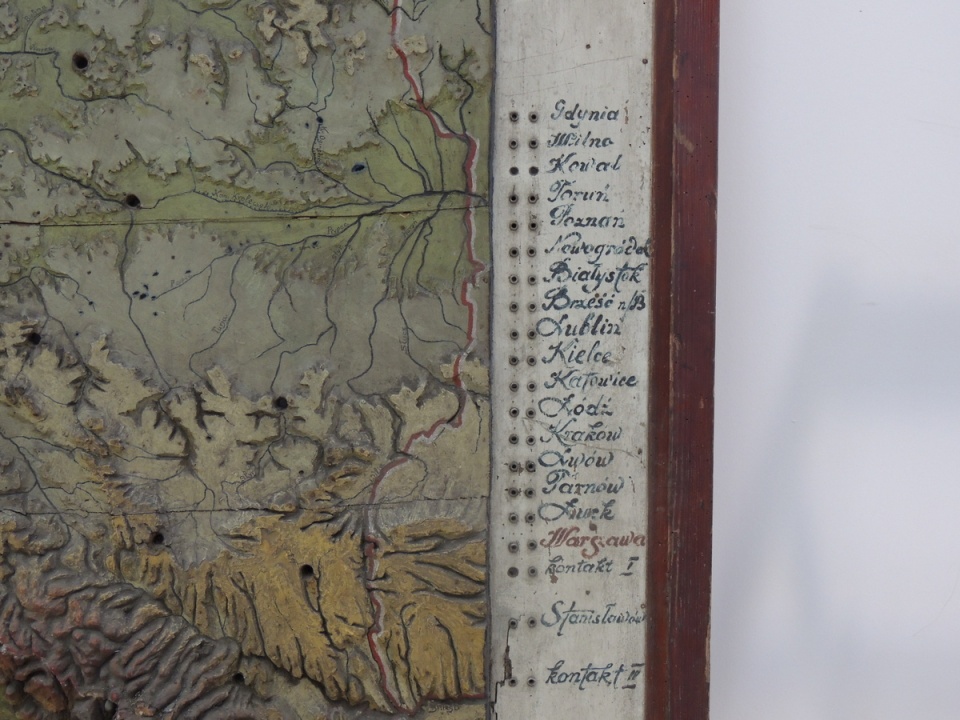 Gdynia
Wilno
Kowal
Toruń
Poznań
Nowogródek
Białystok
Brześć n/B
Lublin
Kielce
Katowice
Łódź
Kraków
Lwów
Tarnów
Łuck
Warszawa
kontakt I
Stanisławów
kontakt II